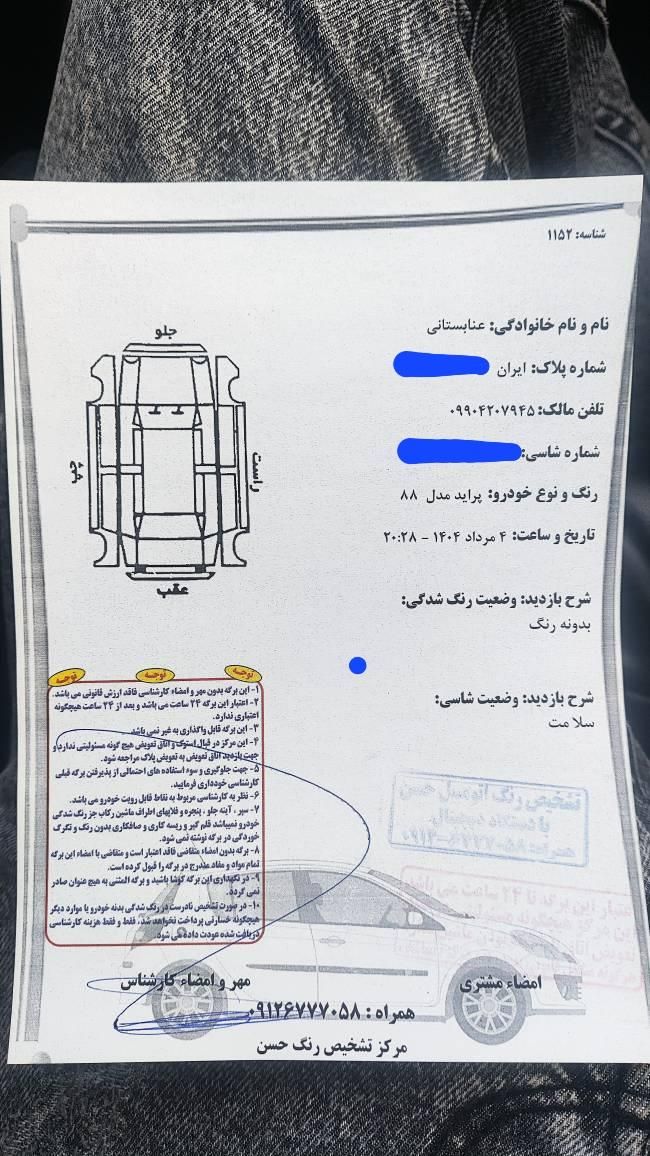 شناسه: ۱۱۵۲
نام و نام خانوادگی: عنابستانی
شماره پلاک: ایران
تلفن مالک: ۰۹۹۰۴۲۰۷۹۴۵
شماره شاسی:
رنگ و نوع خودرو: پراید مدل ۸۸
تاریخ و ساعت: ۴ مرداد ۱۴۰۴ - ۲۰:۲۸
جلو
راست
چپ
عقب
شرح بازدید: وضعیت رنگ شدگی:
بدونه رنگ
شرح بازدید: وضعیت شاسی:
سلامت
توجه توجه توجه
۱- این برگه بدون مهر و امضاء کارشناسی فاقد ارزش قانونی می باشد.
۲- اعتبار این برگه ۲۴ ساعت می باشد و بعد از ۲۴ ساعت هیچگونه
اعتباری ندارد.
۳- این برگه قابل واگذاری به غیر نمی باشد
۴- این مرکز در قبال استوک و اتاق تعویض هیچ گونه مسئولیتی ندارد و
جهت بازدید اتاق تعویض به تعویض پلاک مراجعه شود.
۵- جهت جلوگیری و سوء استفاده های احتمالی از پذیرفتن برگه قبلی
کارشناسی خودداری فرمایید.
۶- نظر به کارشناسی مربوط به نقاط قابل رویت خودرو می باشد.
۷- سپر ، آینه جلو ، پنجره و فلاپهای اطراف ماشین رکاب جز رنگ شدگی
خودرو نمیباشد قلم گیر و ریسه کاری و صافکاری بدون رنگ و تگرگ
خوردگی در برگه نوشته نمی شود.
۸- برگه بدون امضاء متقاضی فاقد اعتبار است و متقاضی با امضاء این برگه
تمام مواد و مفاد مندرج در برگه را قبول کرده است.
۹- در نگهداری این برگه کوشا باشید و برگه المثنی به هیچ عنوان صادر
نمی گردد.
۱۰- در صورت تشخیص نادرست در رنگ شدگی بدنه خودرو یا موارد دیگر
هیچگونه خسارتی پرداخت نخواهد شد. فقط و فقط هزینه کارشناسی
دریافت شده عودت داده می شود.
تشخیص رنگ اتومبیل حسن
با دستگاه دیجیتال
همراه: ۰۹۱۲-۶۷۷۷۰۵۸
اعتبار این برگه تا ۲۴ ساعت می باشد
امضاء مشتری
مهر و امضاء کارشناس
همراه : ۰۹۱۲۶۷۷۷۰۵۸
مرکز تشخیص رنگ حسن